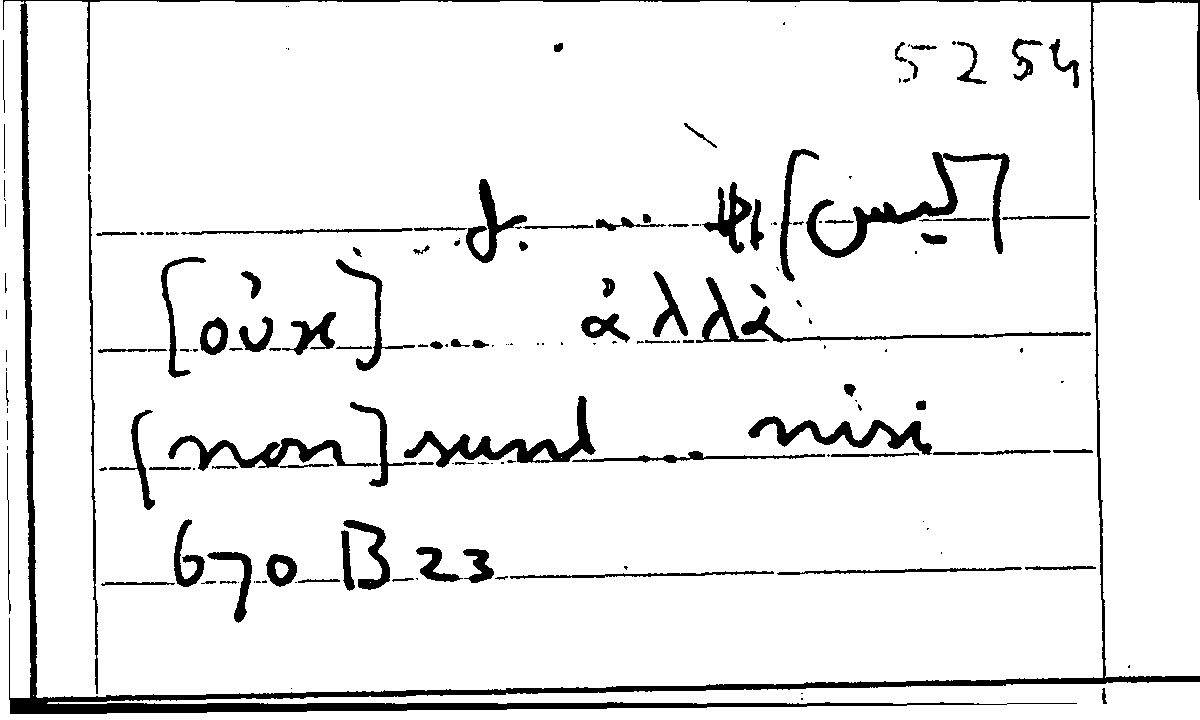 5254
[ليس] ... بل
[οὐκ] ... ἀλλὰ
[non] sunt ... nisi
670 B 23